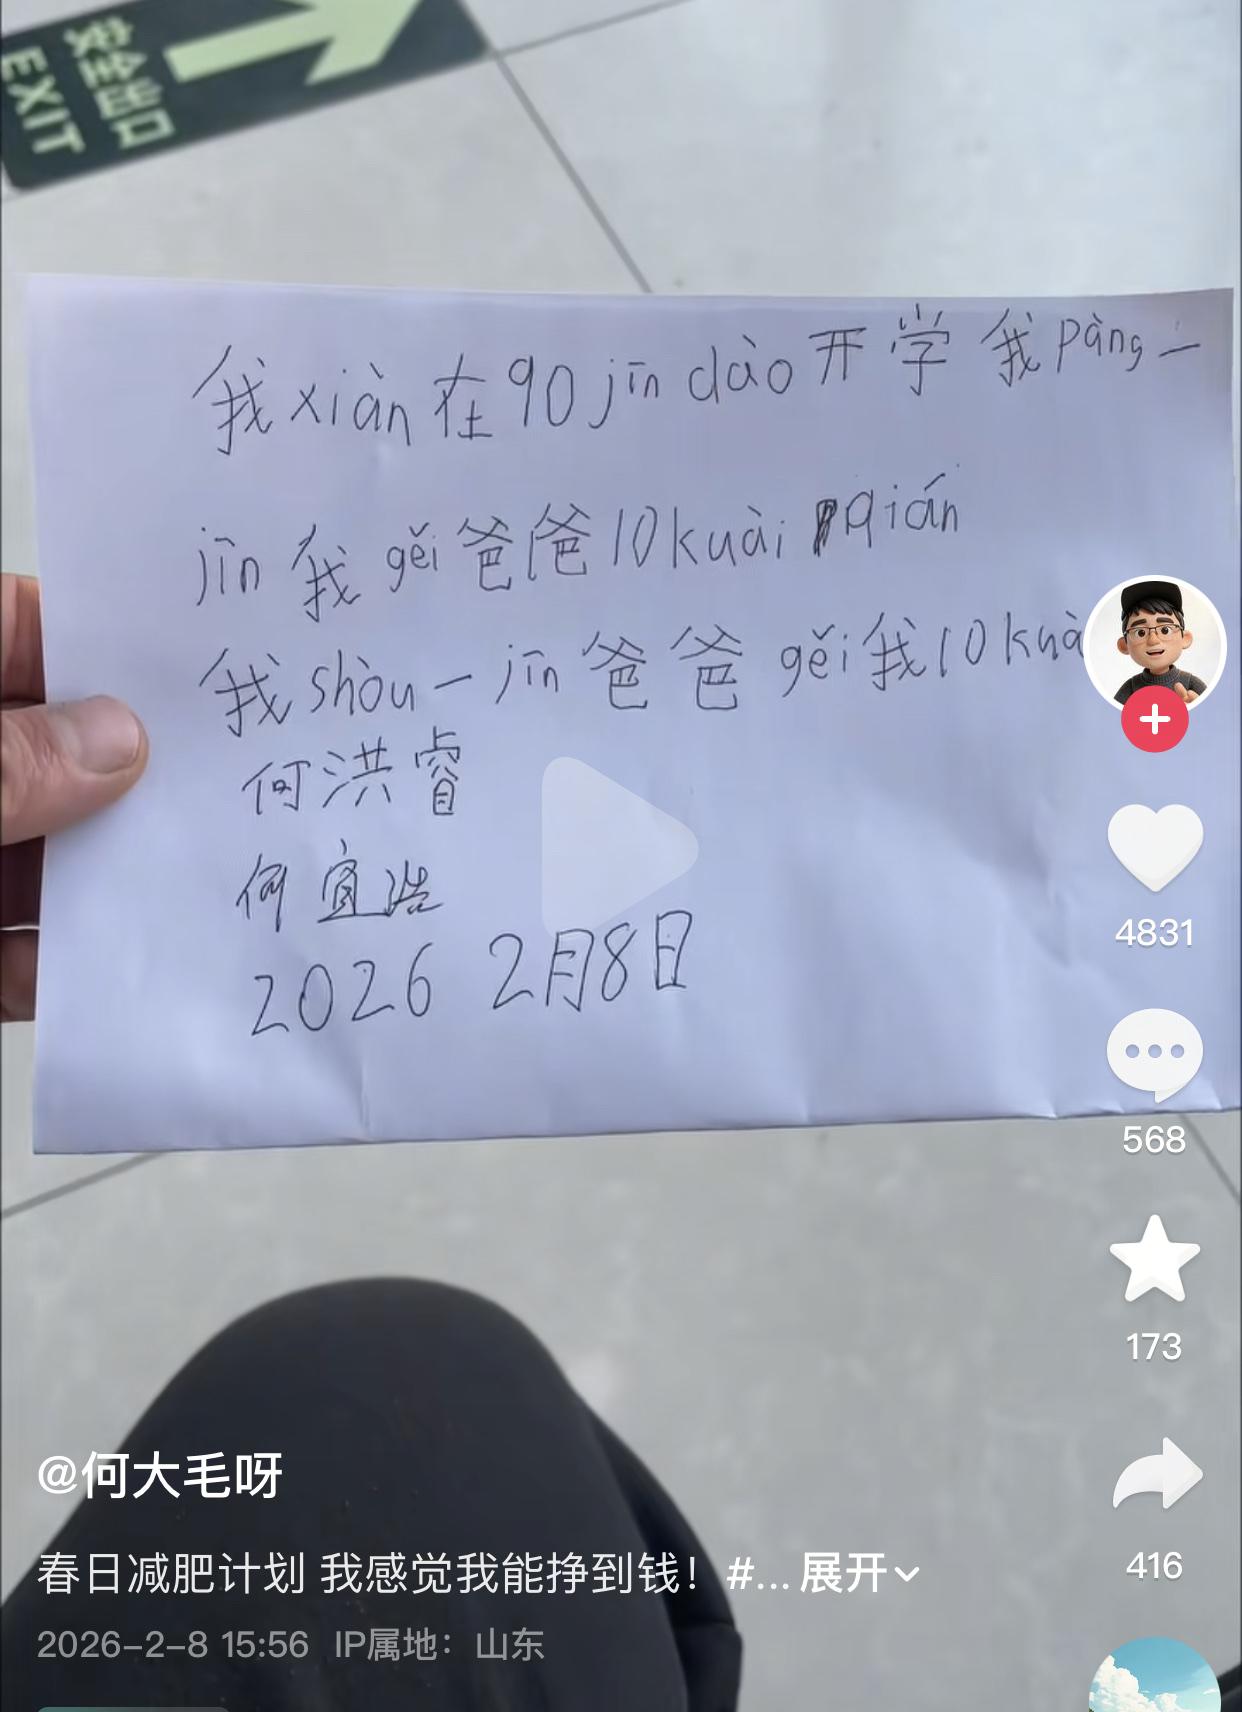 安全出口
EXIT
我xiàn在90jīn dào开学我pàng一
jīn我gěi爸爸10kuài qián
我shòu一jīn爸爸gěi我10kuà
何洪睿
何宜浩
2026 2月8日
4831
568
173
416
@何大毛呀
春日减肥计划 我感觉我能挣到钱！#... 展开
2026-2-8 15:56 IP属地：山东